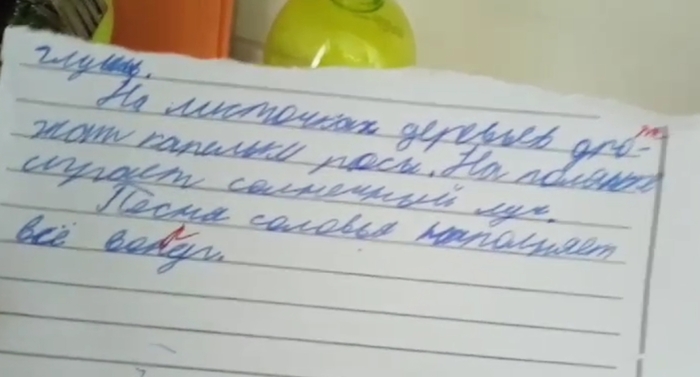 глушь.
На листочках деревьев дро-
жат капельки росы. На полянке
играет солнечный луч.
Песня соловья наполняет
всё вокуг.